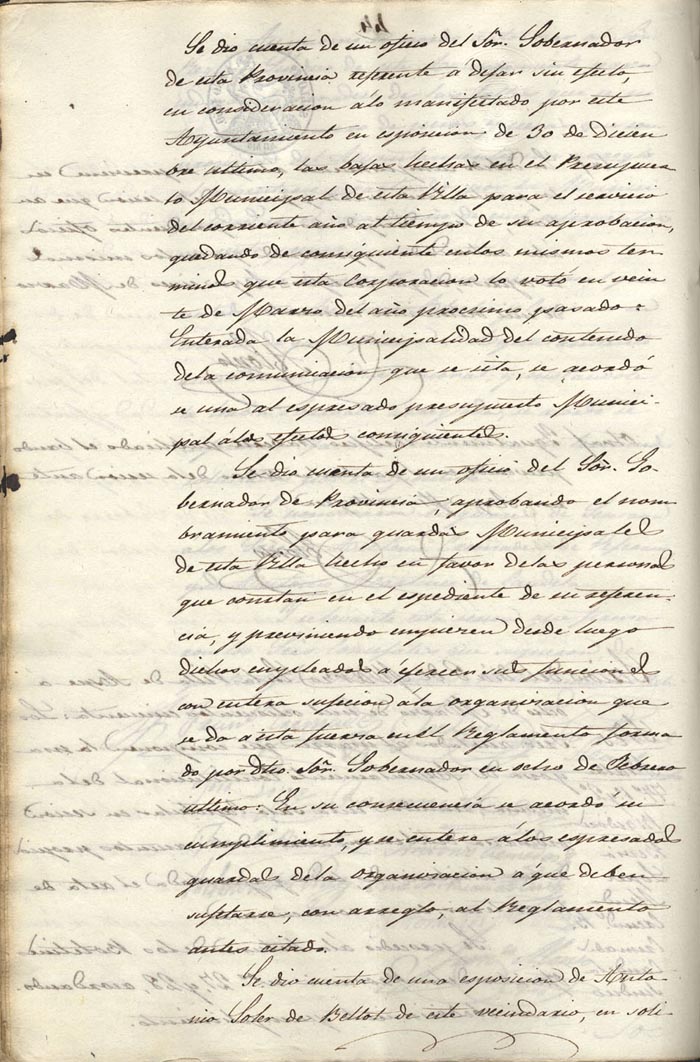 44
Se dio cuenta de un oficio del Sor. Gobernador
de esta Provincia referente a dejar sin efecto,
en consideracion álo manifestado por este
Ayuntamiento en esposicion de 30 de Diciem
bre ultimo, las bajas hechas en el Presupues
to Municipal de esta Villa para el servicio
del corriente año al tiempo de su aprobacion,
quedando de consiguiente enlos mismos ter
minos que esta Corporacion lo votó en vein
te de Marzo del año procsimo pasado:
Enterada la Municipalidad del contenido
dela comunicacion que se cita, se acordó
se una al espresado presupuesto Munici-
pal álos efectos consiguientes.
Se dio cuenta de un oficio del Sor. Go-
bernador de Provincia, aprobando el nom-
bramiento para guardas Municipales
de esta Villa hecho en favor delas personas
que constan en el espediente de su referen-
cia, y previniendo empiecen desde luego
dichos empleados a éjercer sus funciones
con entera sujecion ála organisacion que
se da a esta fuersa en el Reglamento forma
do por Dho. Sor. Gobernador en ocho de Febrero
ultimo: En su consecuencia se acordó su
cumplimiento, y se entere álos espresados
guardas dela organisacion á que deben
sujetarse, con arreglo, al Reglamento
antes citado.
Se dio cuenta de una esposicion de Anto
nio Soler de Bellot de este vecindario, en soli